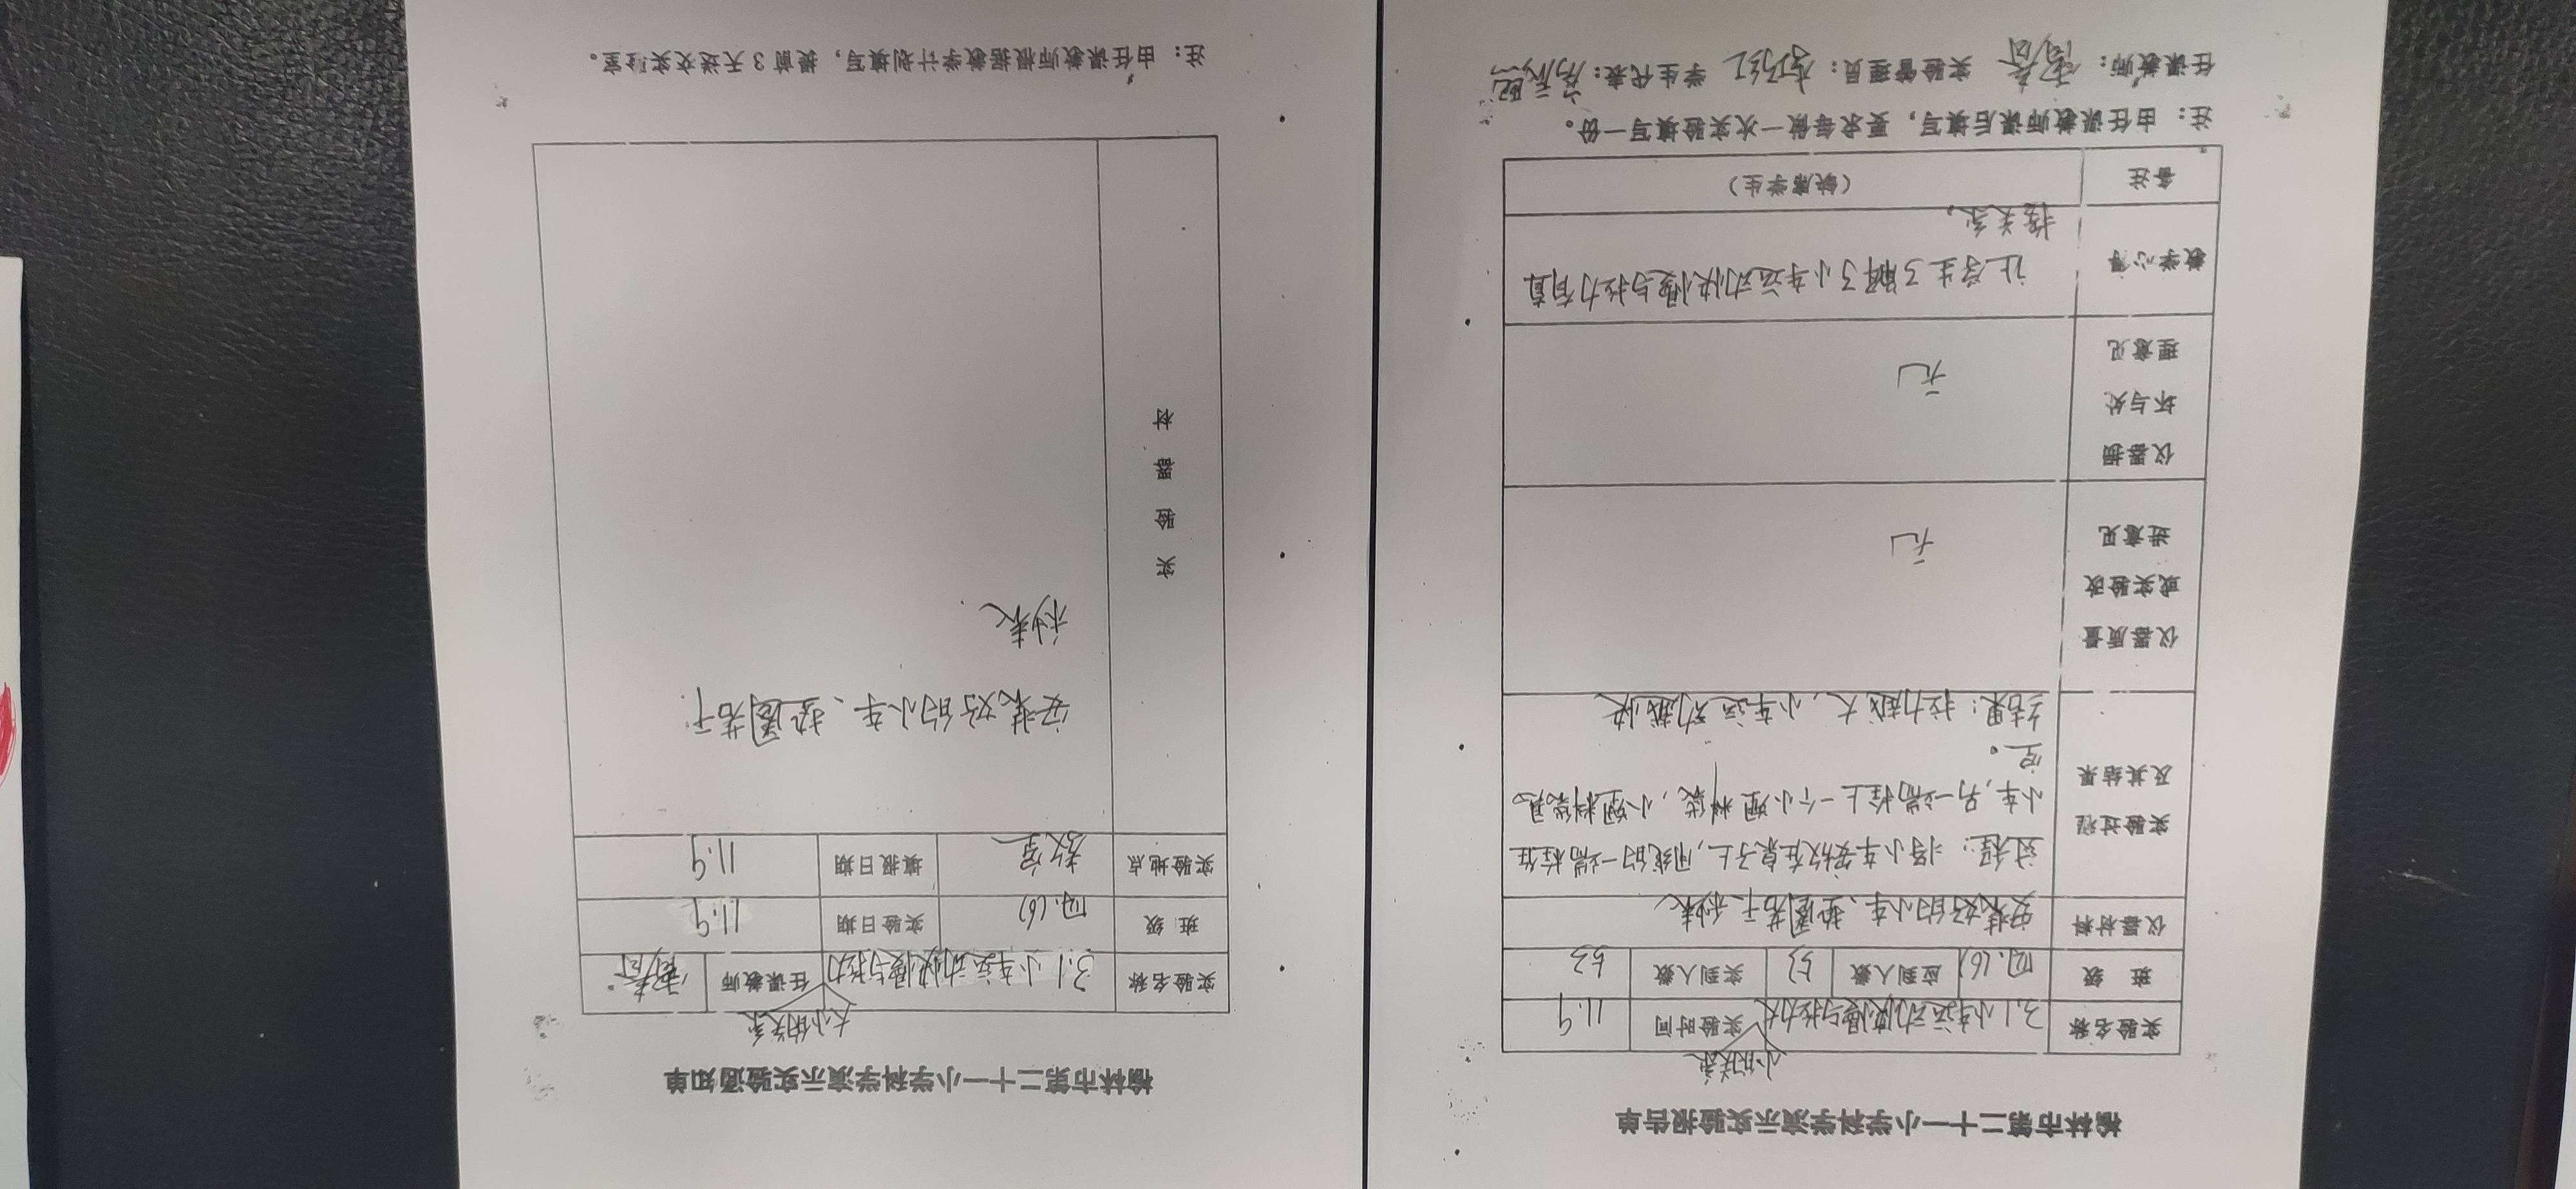 榆林市第二十一小学科学演示实验报告单
小的关系
实验名称 3.1小车运动快慢与拉力大 实验时间 11.9
班 级 四.(6) 应到人数 53 实到人数 53
仪器材料 安装好的小车、垫圈若干 秒表
实验过程
及其结果
过程：将小车安放在桌子上，用线的一端栓住
小车，另一端栓上一个小塑料袋，小塑料袋悬
空。
结果：拉力越大，小车运动越快
仪器质量
或实验改
进意见
无
仪器损
坏与处
理意见
无
教学心得
让学生了解了小车运动快慢与拉力有直
接关系，
备注 （缺席学生）
注：由任课教师课后填写，要求每做一次实验填写一份。
任课教师： 实验管理员： 学生代表：
榆林市第二十一小学科学演示实验通知单
大小的关系
实验名称 3.1 小车运动快慢与拉力 任课教师
班 级 四.(6) 实验日期 11.9
实验地点 教室 填报日期 11.9
实验器材
安装好的小车、垫圈若干.
秒表
注：由任课教师根据教学计划填写，提前3天送交实验室。